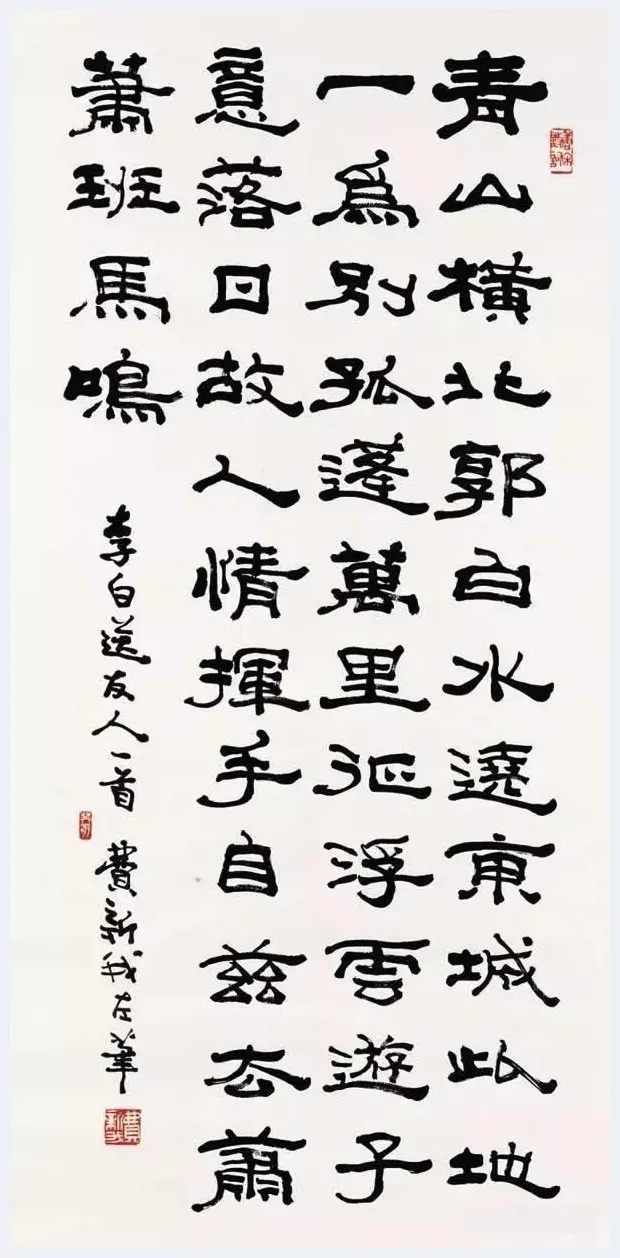 青山橫北郭白水遶東城此地
一爲別孤蓬萬里征浮雲遊子
意落日故人情揮手自茲去蕭
蕭班馬鳴
李白送友人一首 費新我左筆
費新我